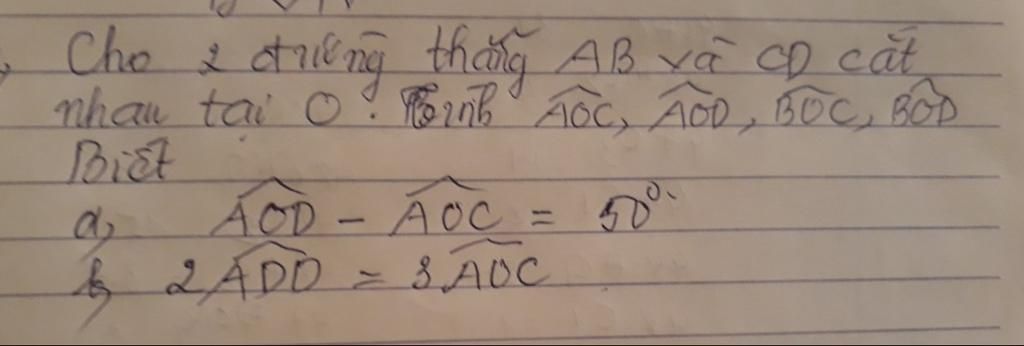 Cho 2 đường thẳng AB và CD cắt
nhau tại O. Tính AOC, AOD, BOC, BOD
Biết
a, AOD - AOC = 50°
b, 2AOD = 3AOC